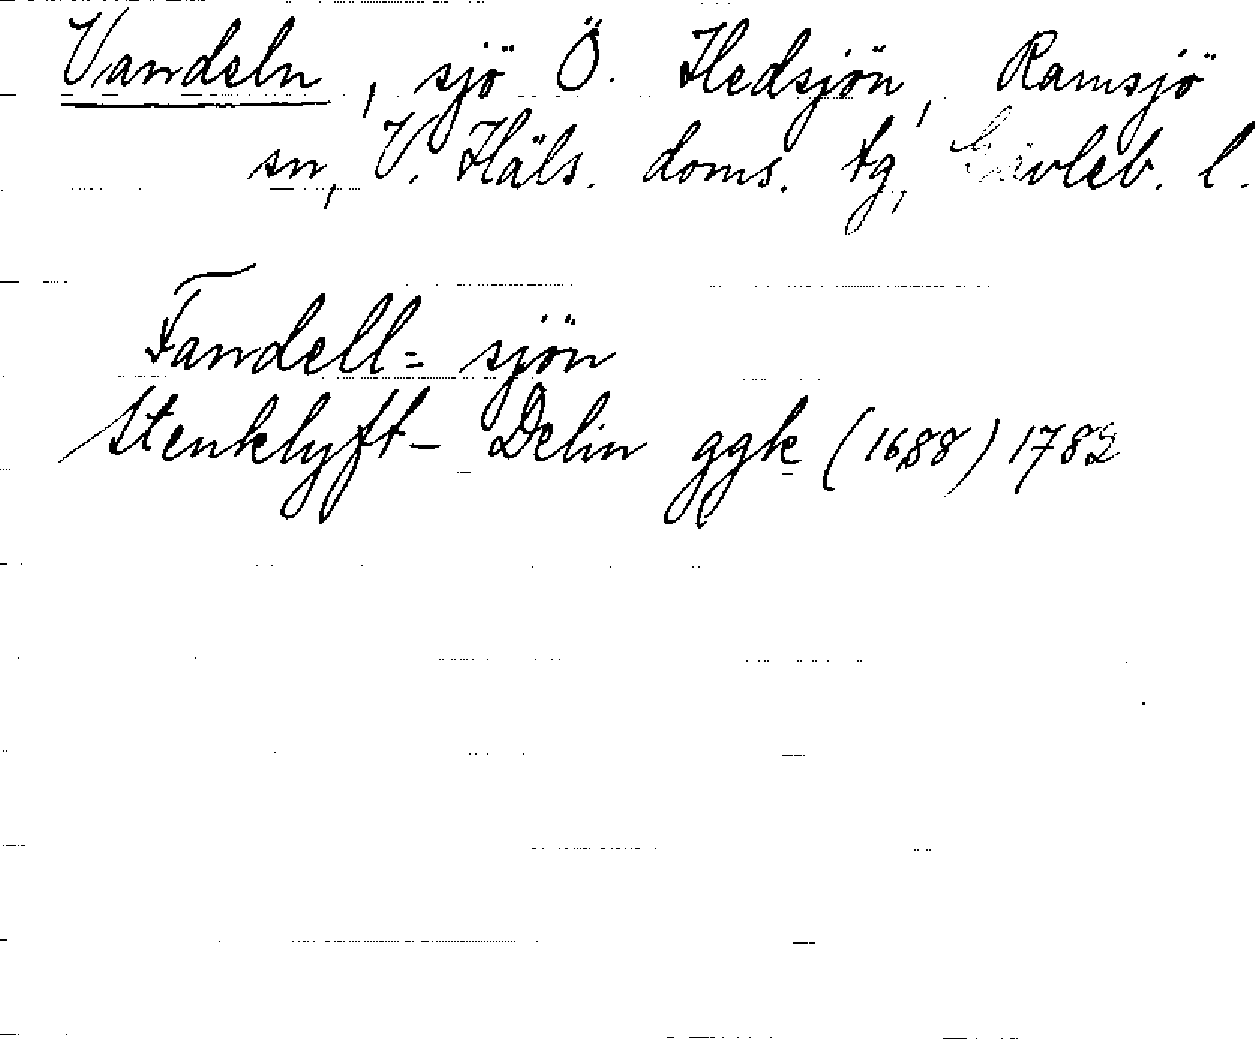 Vandeln, sjö Ö. Hedsjön, Ramsjö
sn, V. Häls. doms. tg, Gävleb. l.
Fandell= sjön
Stenklyft- Delin ggk (1688) 1782